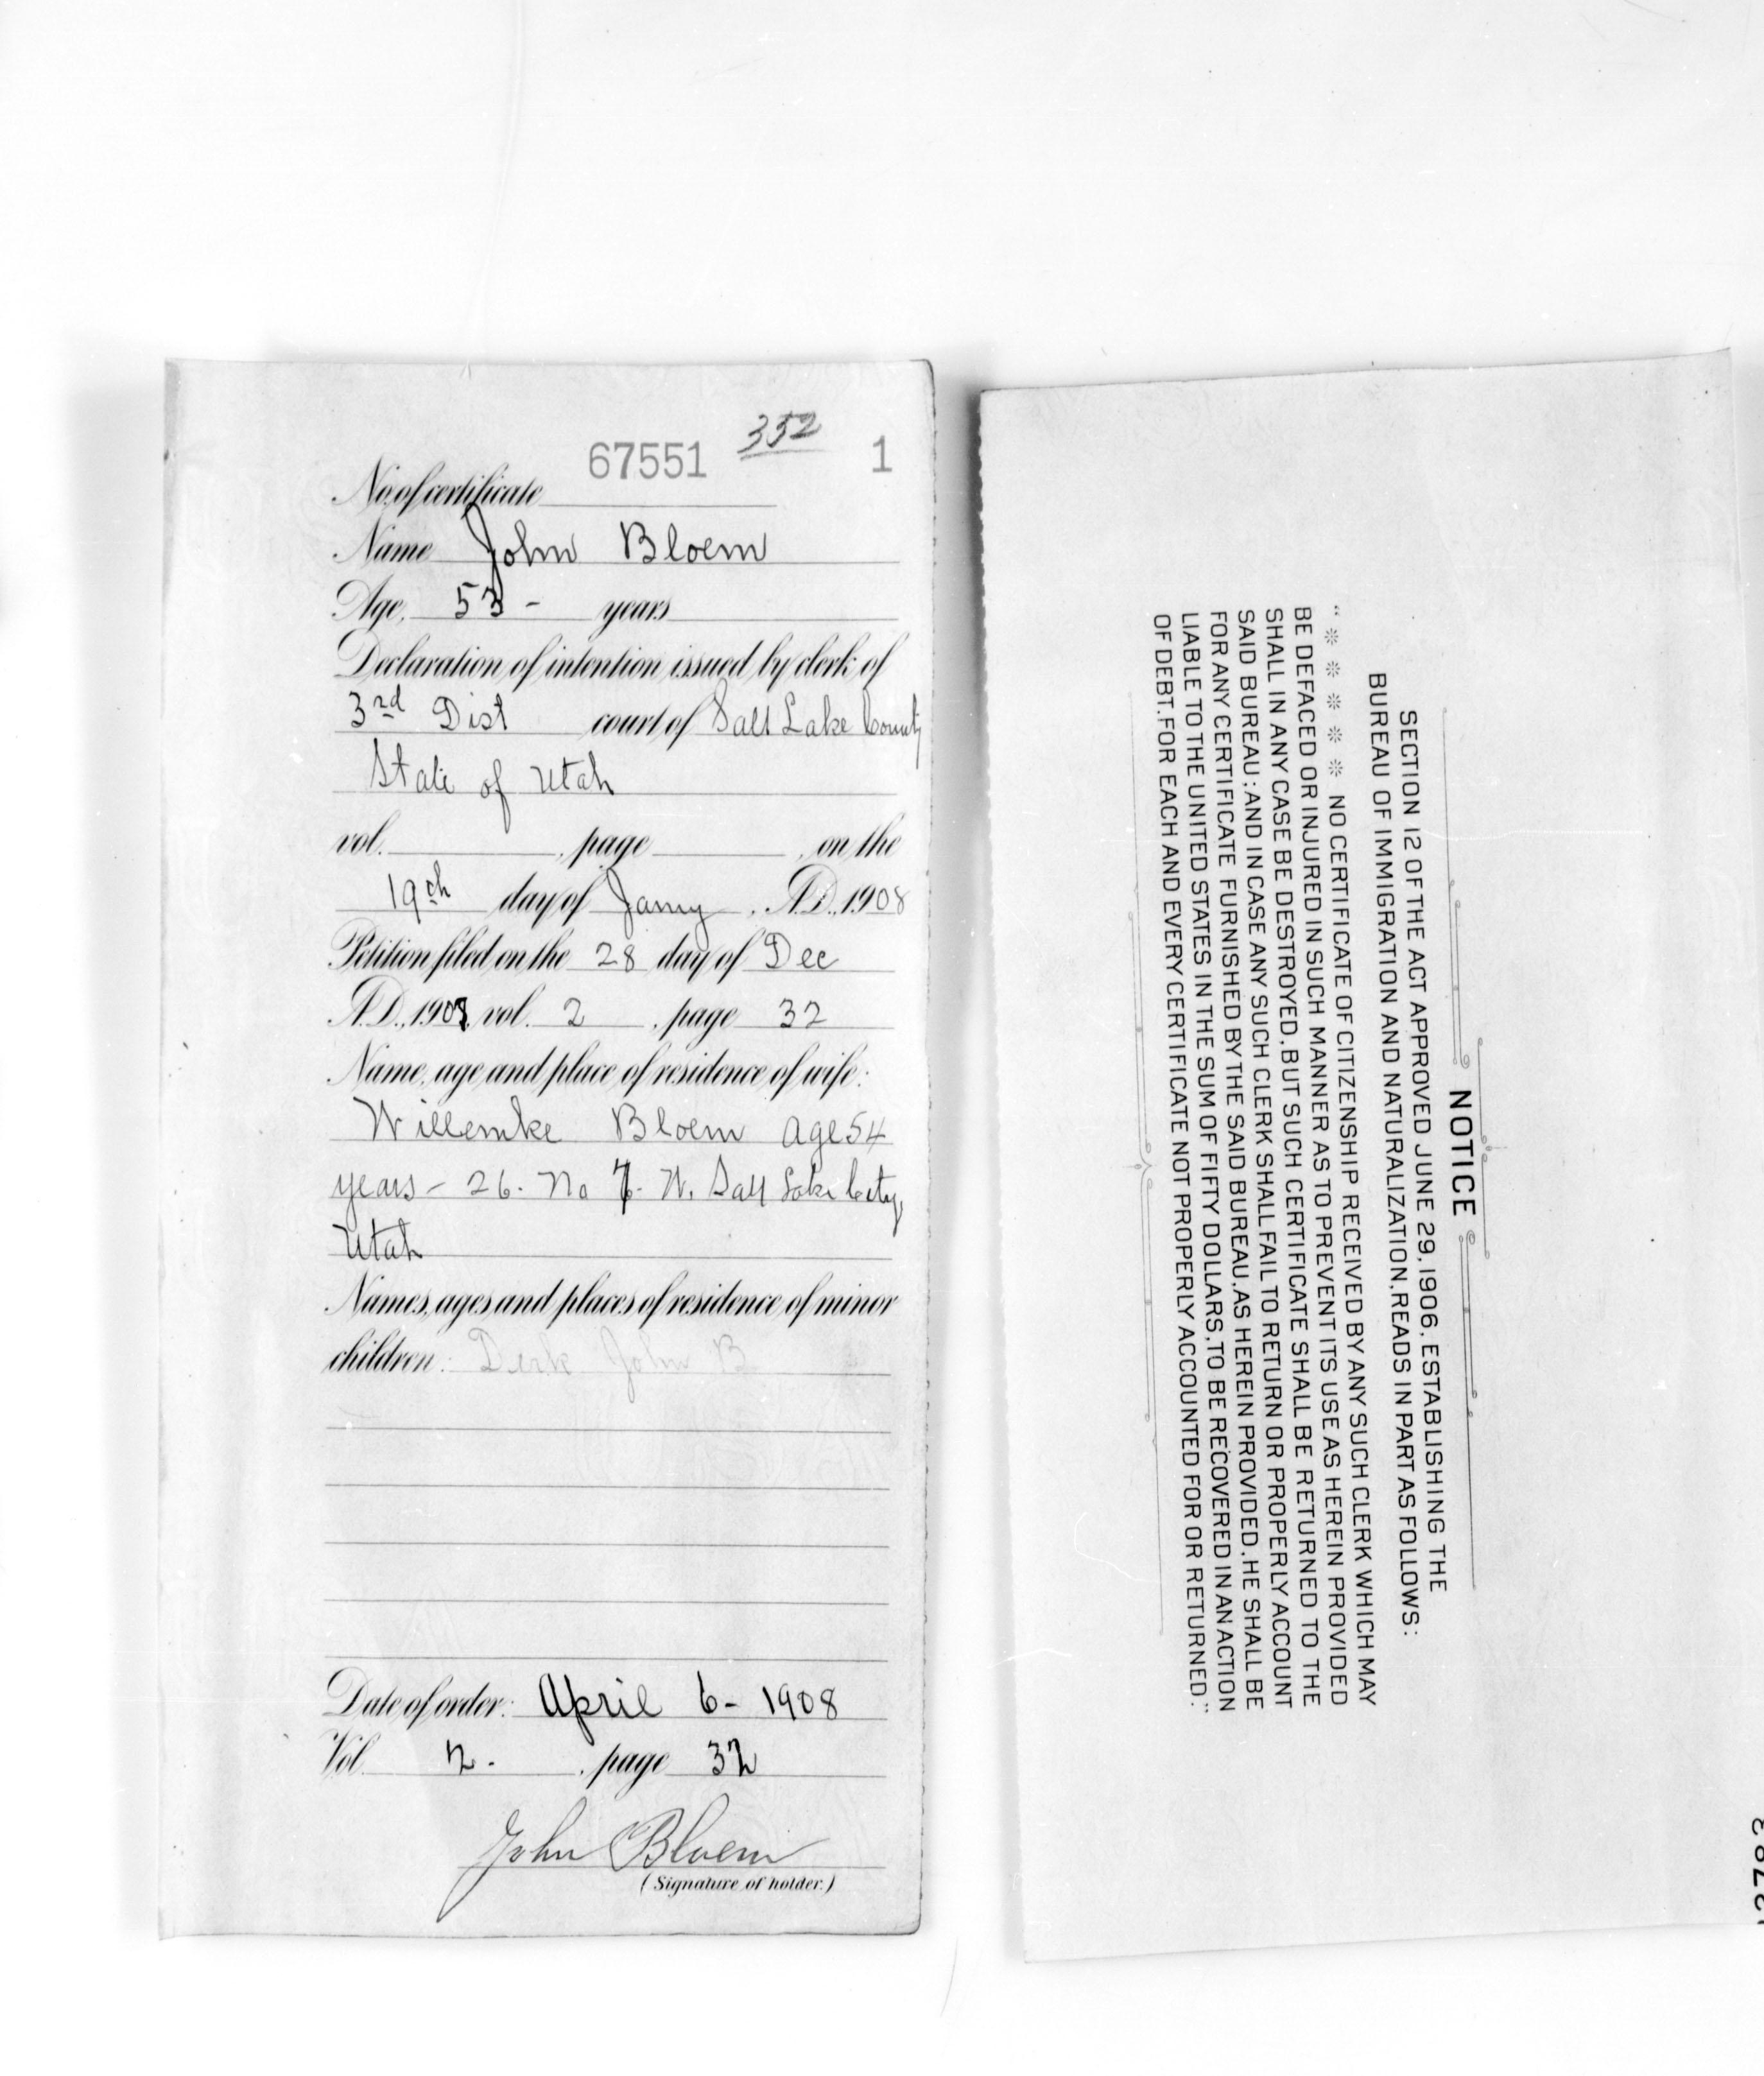 352
67551 1
No. of certificate
Name John Bloem
Age, 53 - years
Declaration of intention issued by clerk of
3rd Dist court of Salt Lake County
State of Utah
vol. , page , on the
19th day of Jany , A.D., 1908
Petition filed on the 28 day of Dec
A.D., 1907, vol. 2 , page 32
Name, age and place of residence of wife:
Willemke Bloem age 54
years - 26. No 7. W. Salt Lake City,
Utah
Names, ages and places of residence of minor
children: Dirk John B
Date of order: April 6 - 1908
Vol. 2 - , page 32
John Bloem
(Signature of holder.)
NOTICE
SECTION 12 OF THE ACT APPROVED JUNE 29, 1906, ESTABLISHING THE
BUREAU OF IMMIGRATION AND NATURALIZATION, READS IN PART AS FOLLOWS:
"* * * * * NO CERTIFICATE OF CITIZENSHIP RECEIVED BY ANY SUCH CLERK WHICH MAY
BE DEFACED OR INJURED IN SUCH MANNER AS TO PREVENT ITS USE AS HEREIN PROVIDED
SHALL IN ANY CASE BE DESTROYED, BUT SUCH CERTIFICATE SHALL BE RETURNED TO THE
SAID BUREAU; AND IN CASE ANY SUCH CLERK SHALL FAIL TO RETURN OR PROPERLY ACCOUNT
FOR ANY CERTIFICATE FURNISHED BY THE SAID BUREAU, AS HEREIN PROVIDED, HE SHALL BE
LIABLE TO THE UNITED STATES IN THE SUM OF FIFTY DOLLARS, TO BE RECOVERED IN AN ACTION
OF DEBT, FOR EACH AND EVERY CERTIFICATE NOT PROPERLY ACCOUNTED FOR OR RETURNED."